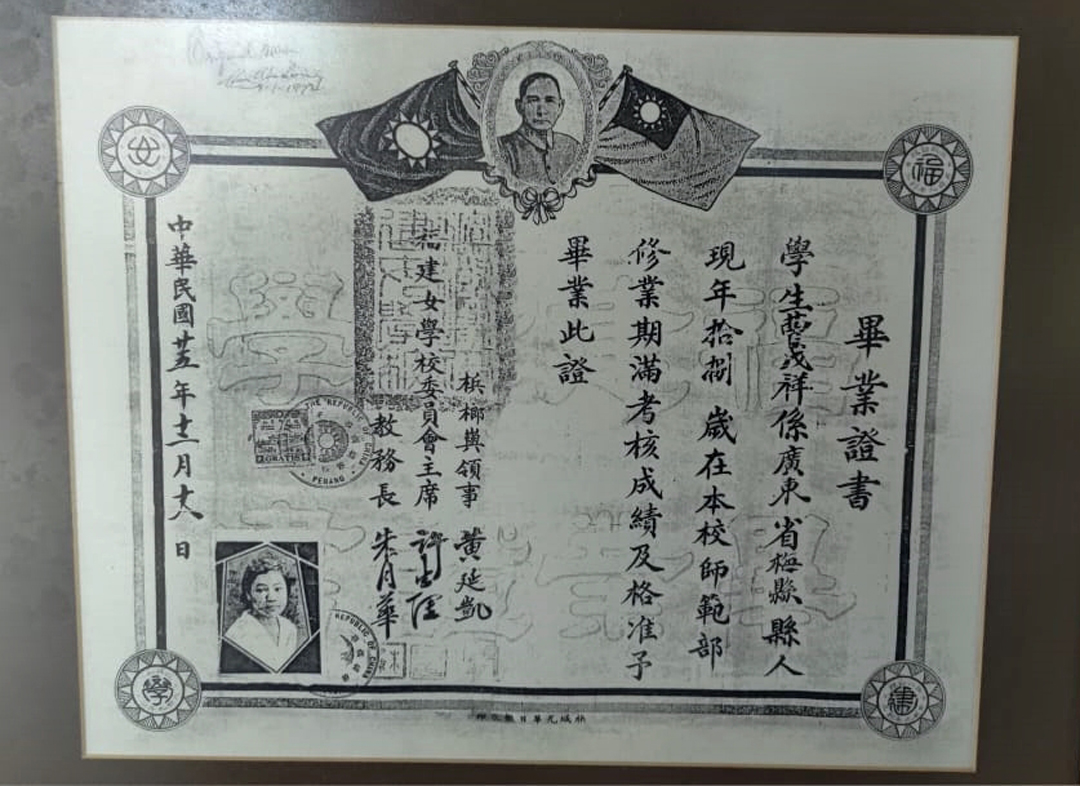 畢業證書
學生茂祥係廣東省梅縣縣人
現年拾捌歲在本校師範部
修業期滿考核成績及格准予
畢業此證
檳榔嶼領事 黃延凱
福建女學校委員會主席 許生理
教務長 朱月華
中華民國廿五年十二月十八日
福
建
學
THE REPUBLIC OF CHINA
PENANG
GRATIS
REPUBLIC OF CHINA
檳城光華日報承印